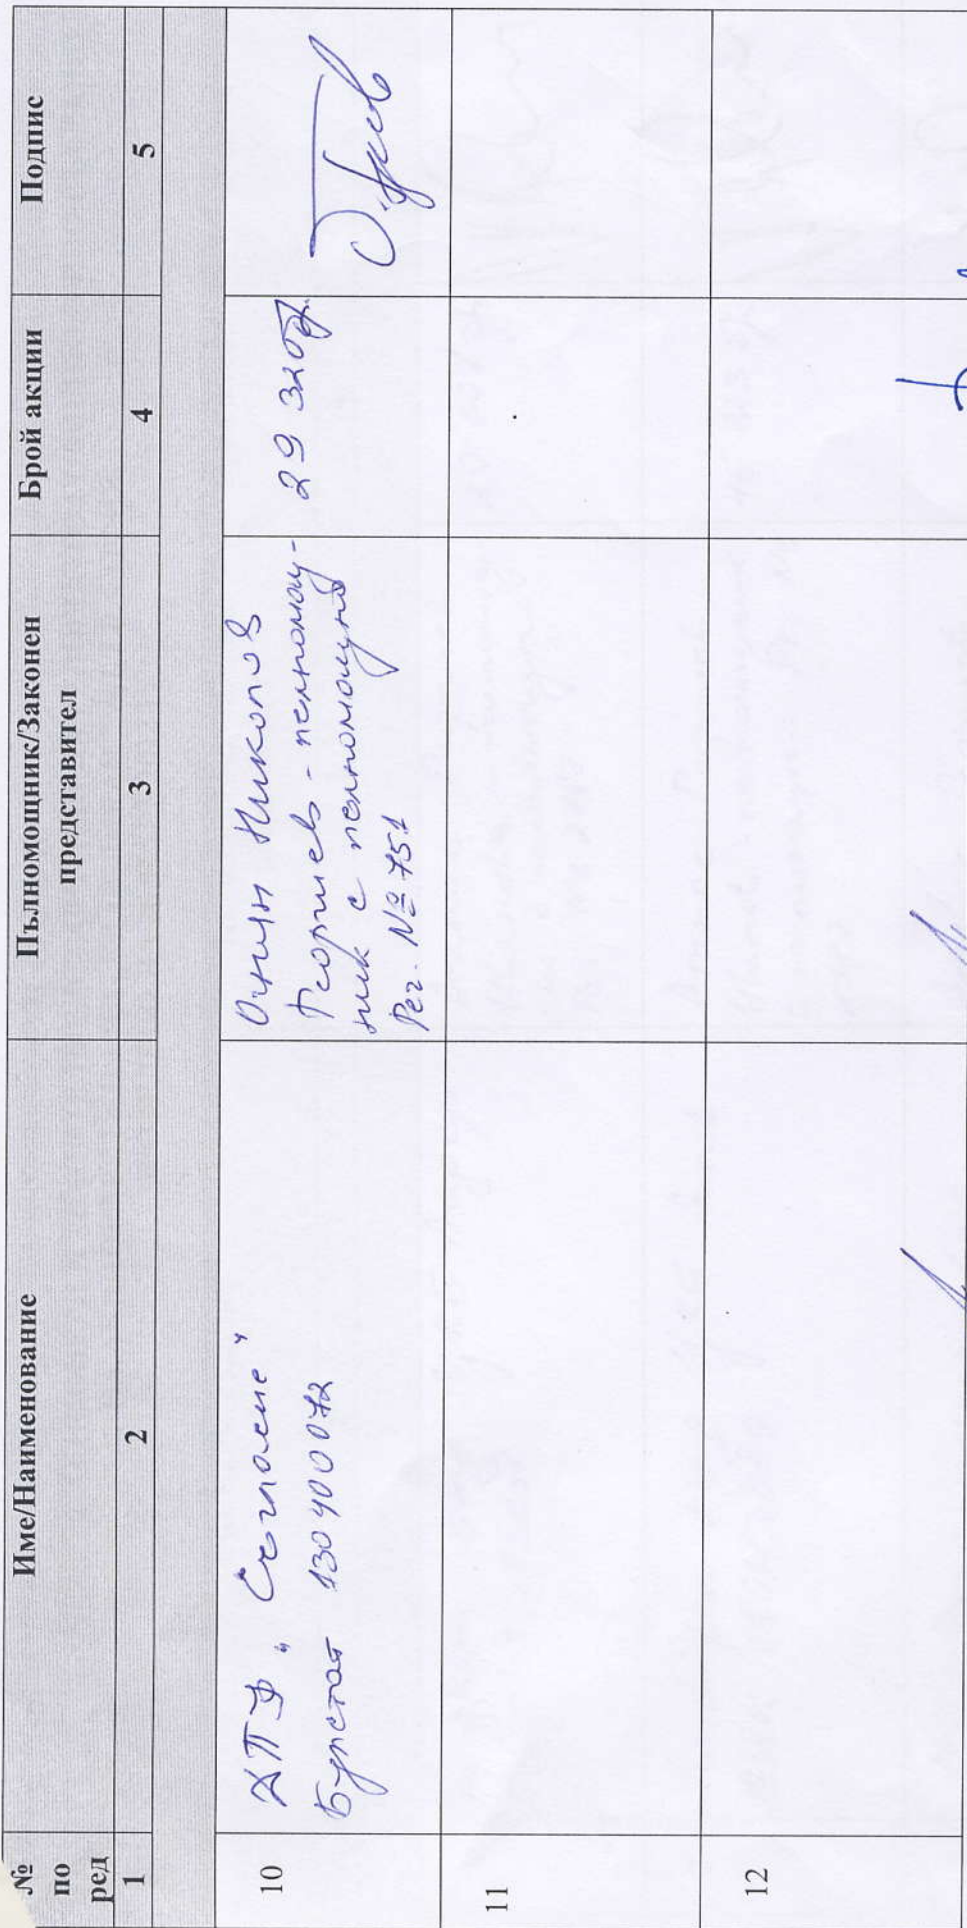 № по ред
Име/Наименование
Пълномощник/Законен представител
Брой акции
Подпис
1
2
3
4
5
10
ДПФ "Съгласие"
Булстат 130400072
Огнян Николов
Георгиев - пълномощ-
ник с пълномощно
Рег. № 751
29 310
11
12